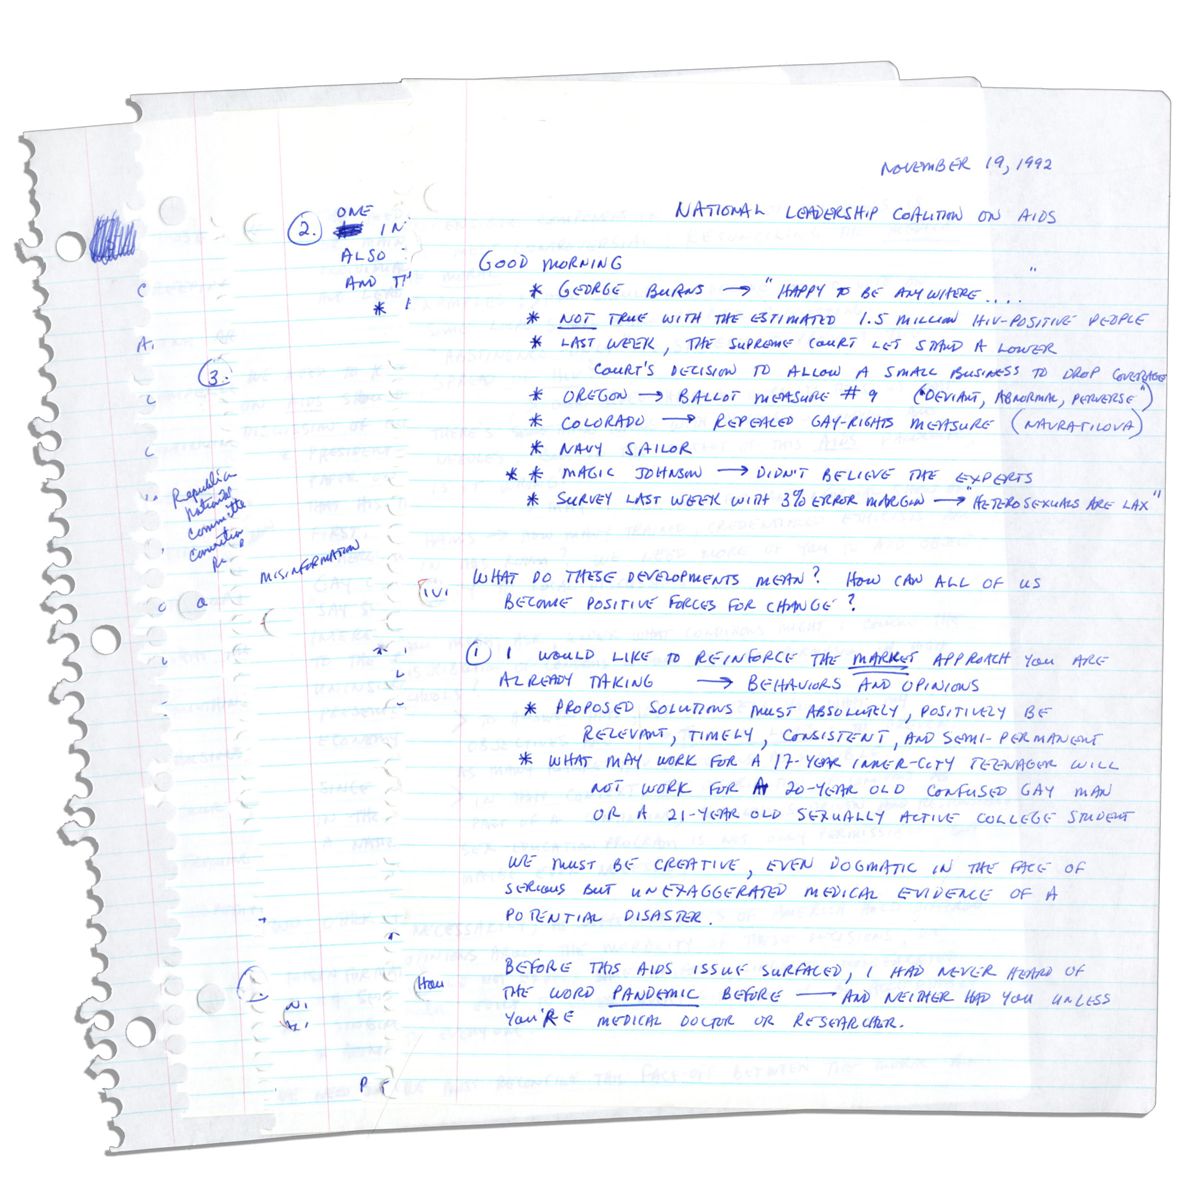 NOVEMBER 19, 1992
NATIONAL LEADERSHIP COALITION ON AIDS
GOOD MORNING
* GEORGE BURNS → "HAPPY TO BE ANYWHERE...."
* NOT TRUE WITH THE ESTIMATED 1.5 MILLION HIV-POSITIVE PEOPLE
* LAST WEEK, THE SUPREME COURT LET STAND A LOWER
COURT'S DECISION TO ALLOW A SMALL BUSINESS TO DROP COVERAGE
* OREGON → BALLOT MEASURE #9 ("DEVIANT, ABNORMAL, PERVERSE")
* COLORADO → REPEALED GAY-RIGHTS MEASURE (NAVRATILOVA)
* NAVY SAILOR
* * MAGIC JOHNSON → DIDN'T BELIEVE THE EXPERTS
* SURVEY LAST WEEK WITH 3% ERROR MARGIN → "HETEROSEXUALS ARE LAX"
WHAT DO THESE DEVELOPMENTS MEAN? HOW CAN ALL OF US
BECOME POSITIVE FORCES FOR CHANGE?
1 I WOULD LIKE TO REINFORCE THE MARKET APPROACH YOU ARE
ALREADY TAKING → BEHAVIORS AND OPINIONS
* PROPOSED SOLUTIONS MUST ABSOLUTELY, POSITIVELY BE
RELEVANT, TIMELY, CONSISTENT, AND SEMI-PERMANENT
* WHAT MAY WORK FOR A 17-YEAR INNER-CITY TEENAGER WILL
NOT WORK FOR A 20-YEAR OLD CONFUSED GAY MAN
OR A 21-YEAR OLD SEXUALLY ACTIVE COLLEGE STUDENT
WE MUST BE CREATIVE, EVEN DOGMATIC IN THE FACE OF
SERIOUS BUT UNEXAGGERATED MEDICAL EVIDENCE OF A
POTENTIAL DISASTER.
BEFORE THIS AIDS ISSUE SURFACED, I HAD NEVER HEARD OF
THE WORD PANDEMIC BEFORE — AND NEITHER HAD YOU UNLESS
YOU'RE MEDICAL DOCTOR OR RESEARCHER.
2. ONE
IN
ALSO
AND
*
3.
Republican
National
Committee
Convention
MISINFORMATION
How